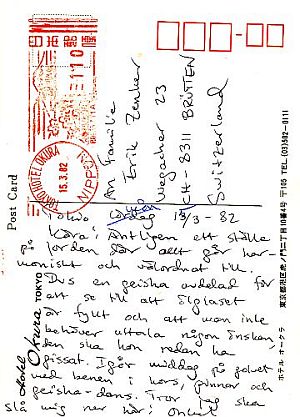 日本郵便
110
TOKYO HOTEL OKURA
15.3.82
NIPPON
An Familie
Erik Zenker
Wegacher 23
CH-8311 BRÜTTEN
Switzerland
Post Card
Tokyo 15/3-82
Kära! Äntligen ett ställe
på jorden där allt går har-
moniskt och välordnat till.
Dvs en geisha avdelad för
att se till att ölglaset
är fyllt och att man inte
behöver uttala någon önskan,
den ska hon redan ha
gissat. Igår middag på golvet
med benen i kors, pinnar och
geisha-dans. Tror jag ska
slå mig ner här! Önskat
Hotel Okura TOKYO
ホテル オークラ
東京都港区虎ノ門二丁目10番4号 〒105 TEL (03)582-0111